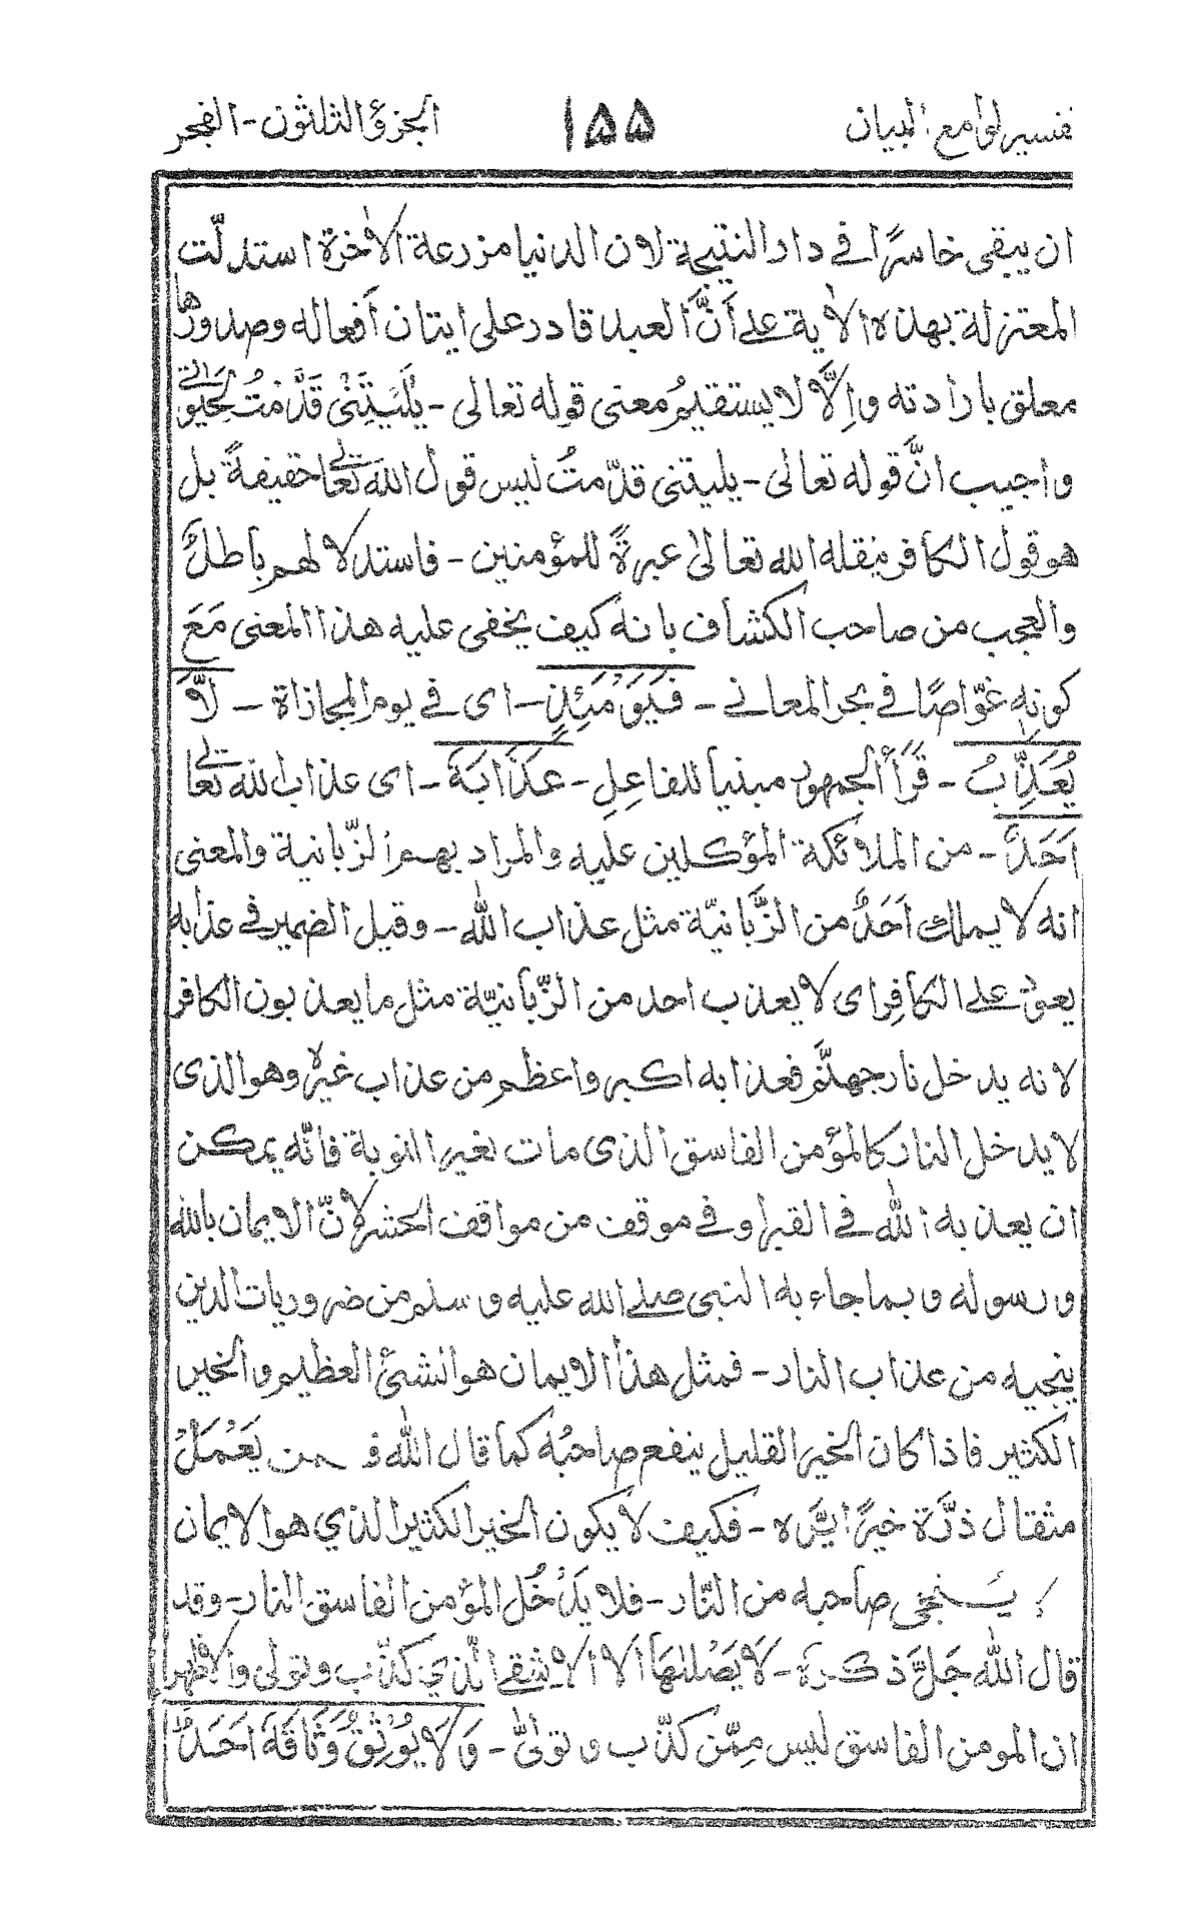 تفسير لوامع البيان ١٥٥ الجزؤ الثلثون - الفجر
ان يبقى خاسرًا فى دار النتيجة لان الدنيا مزرعة الاٰخرة استدلّت
المعتزلة بهذه الاٰية على أنَّ العبد قادر على ايتان أفعاله وصدورها
معلق بارادته وإلَّا لا يستقيمُ معنى قوله تعالى - يٰلَيْتَنِىْ قَدَّمْتُ لِحَيٰوتِىْ
واجيب انَّ قوله تعالى - يليتنى قدّمتُ ليس قول الله تعالٰى حقيقةً بل
هو قول الكافر ينقله الله تعالىٰ عبرةً للمؤمنين - فاستدلالهم باطلٌ
والعجب من صاحب الكشاف بانه كيف يخفى عليه هذا المعنى مَعَ
كونهٖ غوّاصًا فى بحر المعانى - فَيَوْمَئِذٍ - اى فى يوم المجازاة - لَّا
يُعَذِّبُ - قَرَأَ الجمهور مبنيا للفاعِلِ - عَذَابَهٗ - اى عذاب الله تعالٰى
اَحَدٌ - من الملائكة المؤكلين عليه والمراد بهم الزّبانية والمعنى
انه لا يملك اَحَدٌ من الزَّبانيّة مثل عذاب اللّٰه - وقيل الضمير فى عذابه
يعود على الكافِر اى لا يعذب احد من الزّبانيّة مثل ما يعذبون الكافر
لانه يدخل نار جهنّم فعذابه اكبر واعظم من عذاب غيرهٖ وهو الذى
لا يدخل النار كالمؤمن الفاسق الذى مات بغير التوبة فانّه يمكن
ان يعذبه اللّٰه فى القبر او فى موقف من مواقف الحشر لانّ الايمان بالله
ورسوله وبما جاء به النبى صلى الله عليه وسلم من ضروريات الدين
ينجيه من عذاب النار - فمثل هذا الايمان هو الشئ العظيم والخير
الكثير فاذا كان الخير القليل ينفع صاحبُه كما قال اللّٰه فمن يَعْمَلْ
مثقال ذرَّة خيرًا يَّره - فكيف لا يكون الخير الكثير الذي هو الايمان
ينجى صاحبه من النّار - فلا يَدْخُل المؤمن الفاسق النار - وقد
قال اللّٰه جَلَّ ذكره - لَا يَصْلٰىهَا الا الاشقى الّذي كذّب وتولى والاظهر
ان المومن الفاسق ليس مِمّن كذّب وتولىّٰ - وَّلَا يُوْثِقُ وَثَاقَهٗ اَحَدٌ